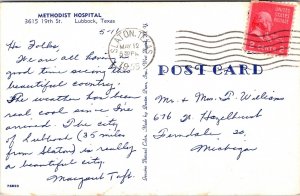 METHODIST HOSPITAL
3615 19th St. Lubbock, Texas
5-11
Hi Folks.
We are all having
good time seeing this
beautiful country.
The weather has been
real cool since I've
arrived. The city
of Lubbock (35 miles
from Slaton) is really
a beautiful city.
Margaret Taft.
SLATON, TEXAS
MAY 12
PM
POST CARD
Mr. & Mrs. T. Williams
676 W. Hazelhurst
Ferndale, 20,
Michigan